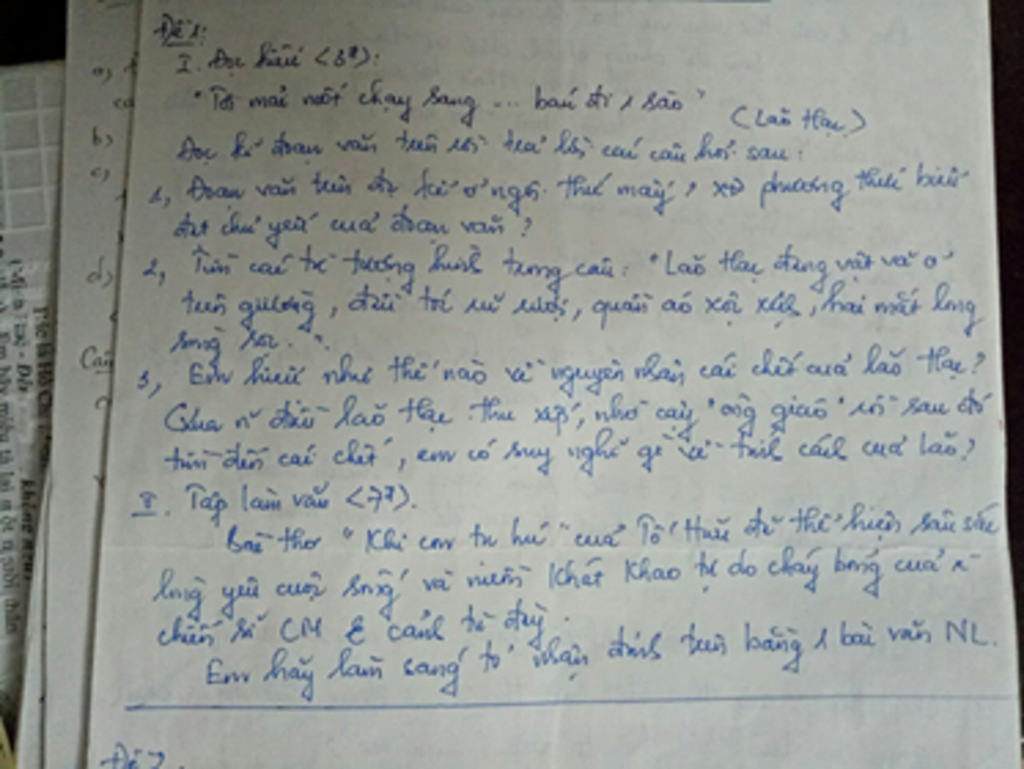 Đề 1:
I. Đọc hiểu <3đ>:
"Tôi mải mốt chạy sang ... bán đi 1 sào"
(Lão Hạc)
Đọc kĩ đoạn văn trên rồi trả lời các câu hỏi sau:
a)
b)
c)
d)
Câu
1, Đoạn văn trên đc kể ở ngôi thứ mấy? XĐ phương thức biểu
đạt chủ yếu của đoạn văn?
2, Tìm các từ tượng hình trong câu: "Lão Hạc đang vật vã ở
trên giường, đầu tóc rũ rượi, quần áo xộc xệch, hai mắt long
sòng sọc."
3, Em hiểu như thế nào về nguyên nhân cái chết của lão Hạc?
Qua n~ điều lão Hạc thu xếp, nhờ cậy "ông giáo" rồi sau đó
tìm đến cái chết, em có suy nghĩ gì về tính cách của lão?
II. Tập làm văn <7đ>.
Bài thơ "Khi con tu hú" của Tố Hữu đã thể hiện sâu sắc
lòng yêu cuộc sống và niềm khát khao tự do cháy bỏng của
chiến sĩ CM cảnh tù đày.
Em hãy làm sáng tỏ nhận định trên bằng 1 bài văn NL.
Đề 2